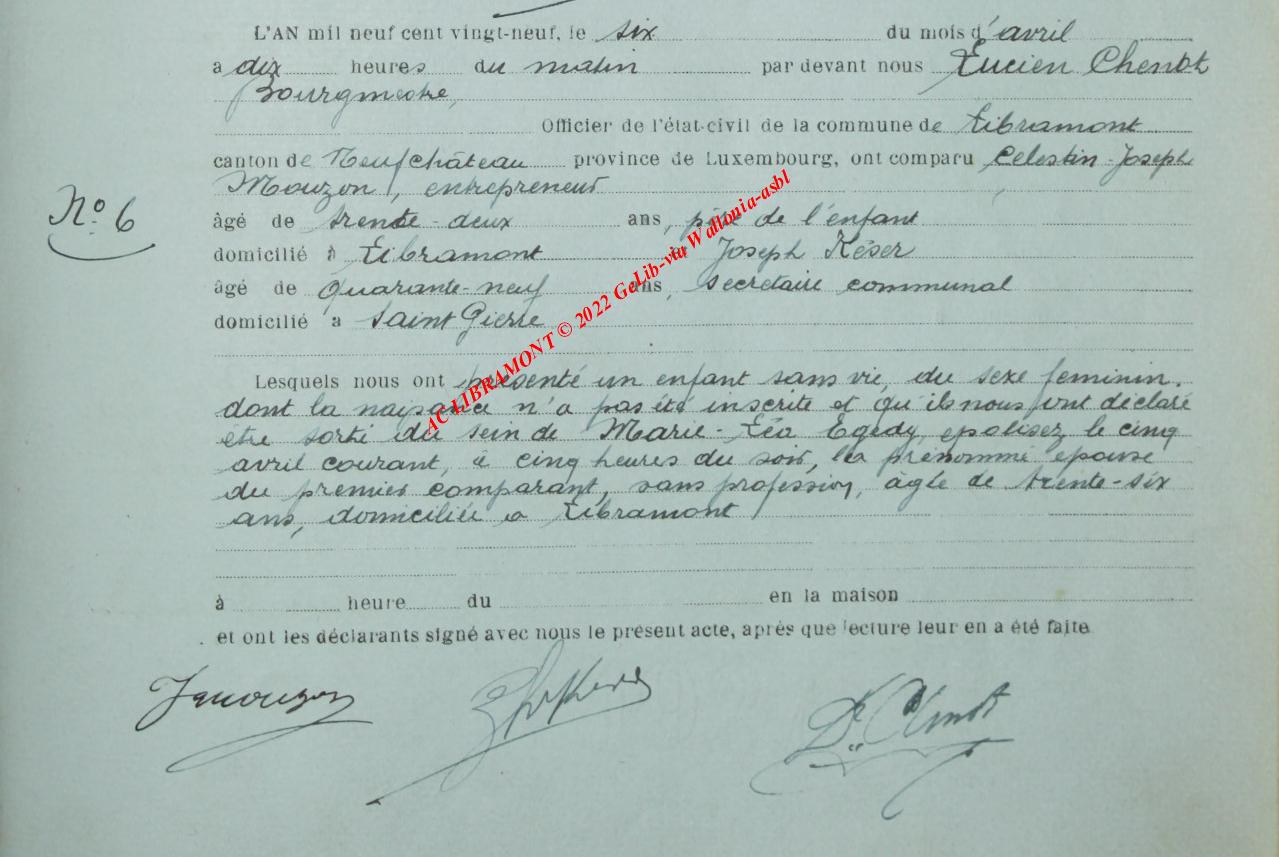 L'AN mil neuf cent vingt-neuf, le six du mois d'avril
a dix heures du matin par devant nous Lucien Chenot
Bourgmestre,
Officier de l'état-civil de la commune de Libramont
canton de Neufchâteau province de Luxembourg, ont comparu Celestin-Joseph
Mouzon, entrepreneur
N° 6
âgé de trente-deux ans, père de l'enfant
domicilié à Libramont et Joseph Késer
âgé de quarante-neuf ans, secretaire communal
domicilié a Saint Pierre
AC LIBRAMONT © 2022 GeLib-via Wallonia-asbl
Lesquels nous ont présenté un enfant sans vie, du sexe feminin.
dont la naissance n'a pas été inscrite et qu'ils nous ont déclaré
être sorti du sein de Marie-Léa le cinq
avril courant, à cinq heures du soir, la prénommé épouse
du premier comparant, sans profession, âgée de trente-six
ans, domiciliée a Libramont
à heure du en la maison
et ont les déclarants signé avec nous le présent acte, après que lecture leur en a été faite
Dr Chenot